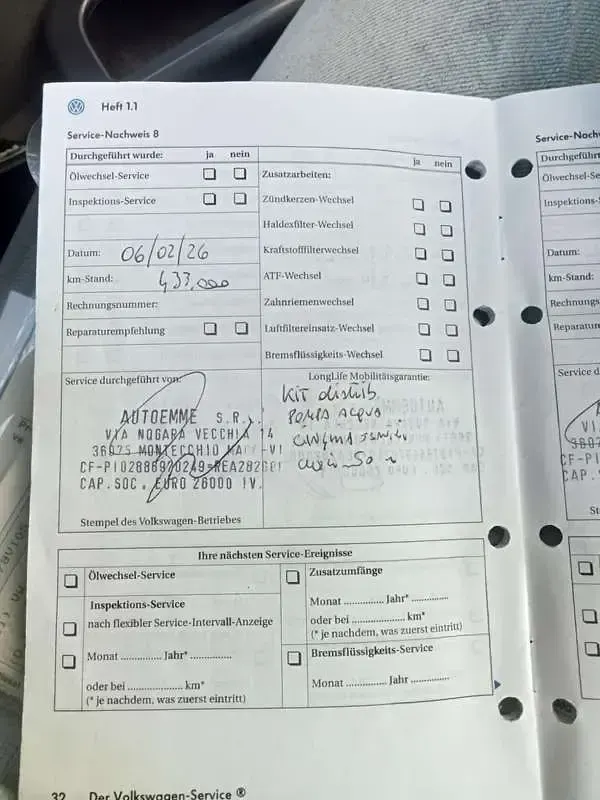 Heft 1.1
Service-Nachweis 8
Durchgeführt wurde: ja nein
Ölwechsel-Service
Inspektions-Service
Datum: 06/02/26
km-Stand: 433,000
Rechnungsnummer:
Reparaturempfehlung
ja nein
Zusatzarbeiten:
Zündkerzen-Wechsel
Haldexfilter-Wechsel
Kraftstofffilterwechsel
ATF-Wechsel
Zahnriemenwechsel
Luftfiltereinsatz-Wechsel
Bremsflüssigkeits-Wechsel
Service durchgeführt von:
AUTOEMME S.R.
VIA NOGARA VECCHIA 14
36075 MONTECCHIO
CF-PI02886920249=REA282
CAP.SOC. EURO 26000 IV.
Stempel des Volkswagen-Betriebes
LongLife Mobilitätsgarantie:
KIT distrib.
POMPA ACQUA
Ihre nächsten Service-Ereignisse
Ölwechsel-Service
Inspektions-Service
nach flexibler Service-Intervall-Anzeige
Monat .............. Jahr* ..............
oder bei .................... km*
(* je nachdem, was zuerst eintritt)
Zusatzumfänge
Monat .............. Jahr* ..............
oder bei .................... km*
(* je nachdem, was zuerst eintritt)
Bremsflüssigkeits-Service
Monat .............. Jahr ..............
32 Der Volkswagen-Service ®
Service-Nachw
Durchgeführt
Ölwechsel-Se
Inspektions-
Datum:
km-Stand:
Rechnungs
Reparatur
Service d